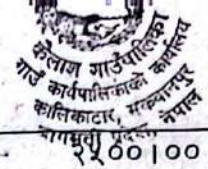 कैलाश गाउँपालिका
गाउँ कार्यपालिकाको कार्यालय
कालिकाटार, मकवानपुर
बागमती प्रदेश, नेपाल
२५००|००